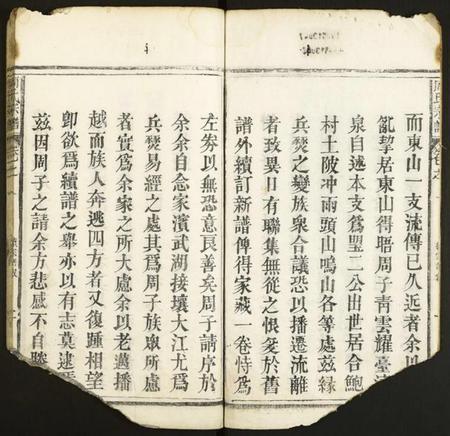 而東山一支流傳已久近者余以
亂挈居東山得晤周子青雲耀臺
泉自述本支爲聖二公出世居合鮑
村土陂冲雨頭山鳴山各等處茲緣
兵燹之變族衆合議恐以播遷流離
者致異日有聯集無從之恨爰於舊
譜外續訂新譜俾得家藏一卷恃爲
左劵以無恐意良善矣周子請序於
余余自念家濱武湖接壤大江尤爲
兵燹易經之處其爲周子族取所慮
者實爲余家之所大慮余以老邁播
越而族人奔逃四方者又復踵相望
卽欲爲續譜之舉亦以有志莫逮
茲因周子之請余方悲感不自勝
周氏宗譜
周氏宗譜